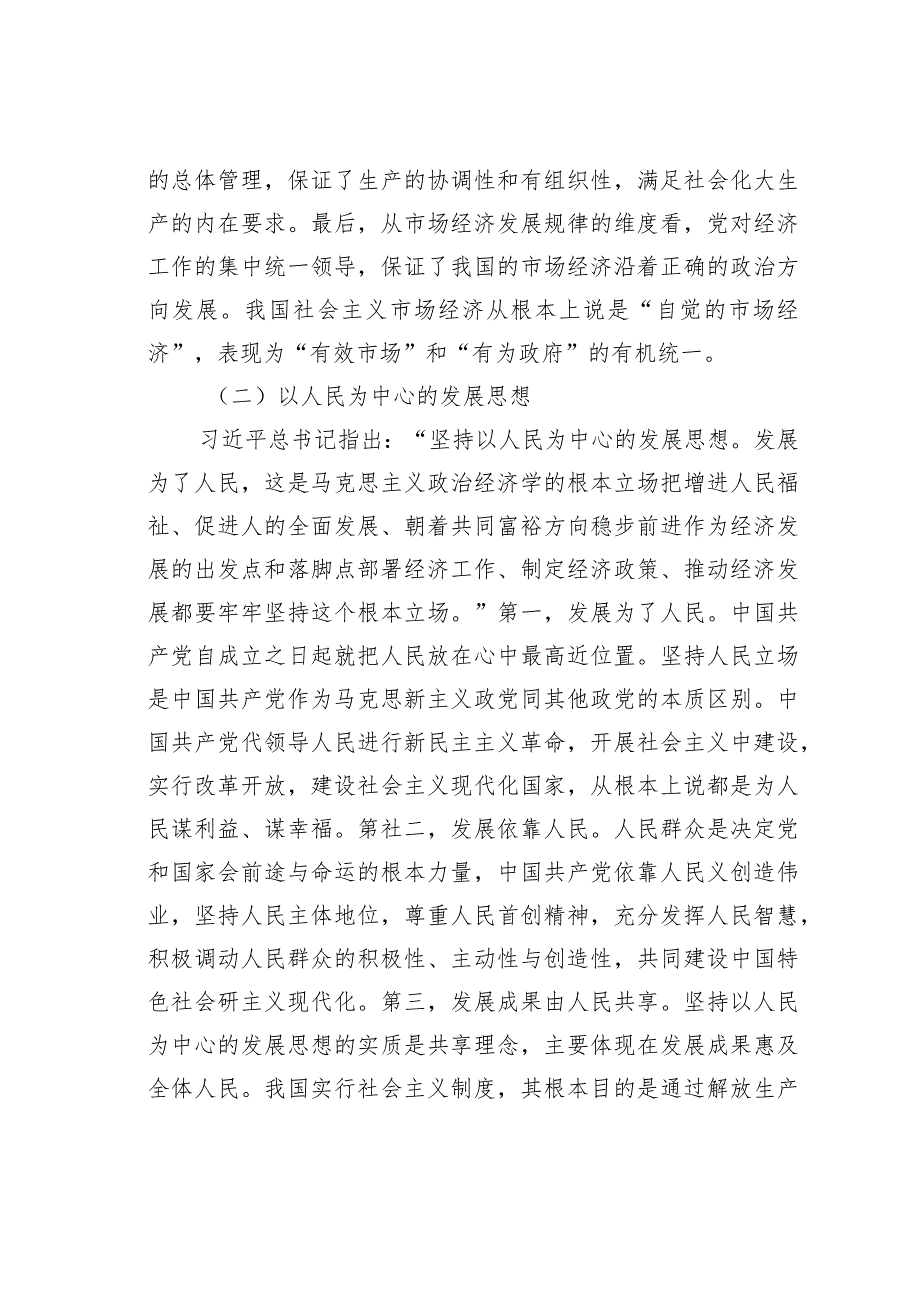 的总体管理，保证了生产的协调性和有组织性，满足社会化大生
产的内在要求。最后，从市场经济发展规律的维度看，党对经济
工作的集中统一领导，保证了我国的市场经济沿着正确的政治方
向发展。我国社会主义市场经济从根本上说是“自觉的市场经
济”，表现为“有效市场”和“有为政府”的有机统一。
（二）以人民为中心的发展思想
习近平总书记指出：“坚持以人民为中心的发展思想。发展
为了人民，这是马克思主义政治经济学的根本立场把增进人民福
祉、促进人的全面发展、朝着共同富裕方向稳步前进作为经济发
展的出发点和落脚点部署经济工作、制定经济政策、推动经济发
展都要牢牢坚持这个根本立场。”第一，发展为了人民。中国共
产党自成立之日起就把人民放在心中最高近位置。坚持人民立场
是中国共产党作为马克思新主义政党同其他政党的本质区别。中
国共产党代领导人民进行新民主主义革命，开展社会主义中建设，
实行改革开放，建设社会主义现代化国家，从根本上说都是为人
民谋利益、谋幸福。第社二，发展依靠人民。人民群众是决定党
和国家会前途与命运的根本力量，中国共产党依靠人民义创造伟
业，坚持人民主体地位，尊重人民首创精神，充分发挥人民智慧，
积极调动人民群众的积极性、主动性与创造性，共同建设中国特
色社会研主义现代化。第三，发展成果由人民共享。坚持以人民
为中心的发展思想的实质是共享理念，主要体现在发展成果惠及
全体人民。我国实行社会主义制度，其根本目的是通过解放生产